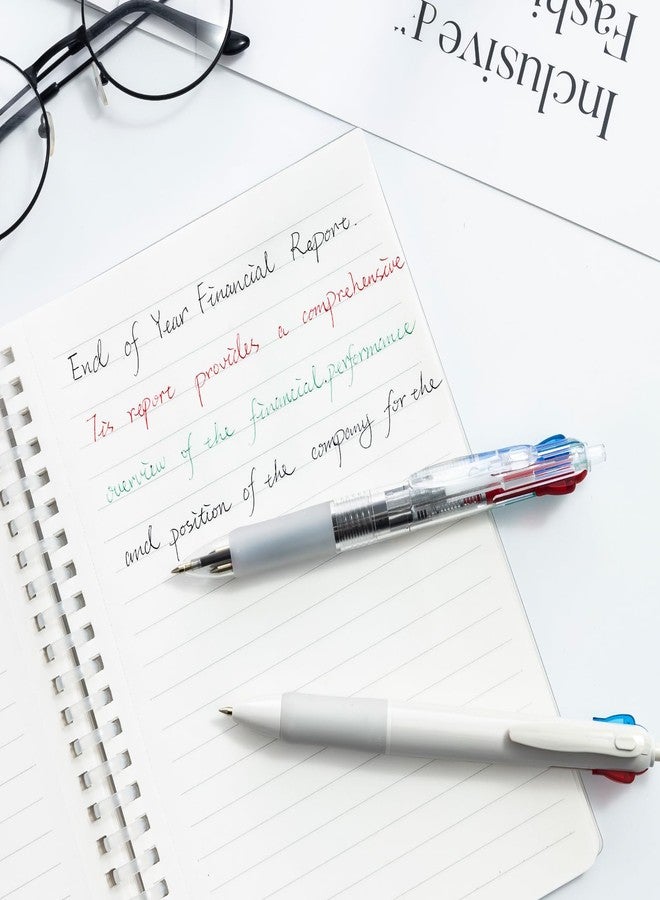 Inclusive d
Fashi
End of Year Financial Report.
Tis report provides a comprehensive
overview of the financial.performance
and position of the company for the